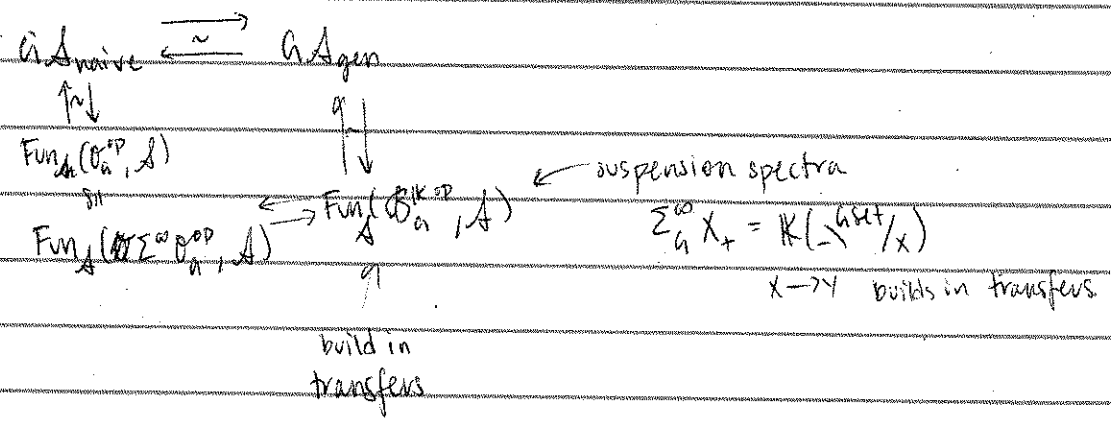 G𝒮naive ⇄ ~ G𝒮gen
↑~↓
Fun(𝒪_G^op, 𝒮)
Fun_𝒮(Σ^∞ 𝒪_G^op, 𝒮) ⇄ Fun_𝒮(ℬ_G^{𝕂 op}, 𝒮) ← suspension spectra
Σ_G^∞ X_+ = 𝕂(GSet/X)
X → Y builds in transfers
build in
transfers